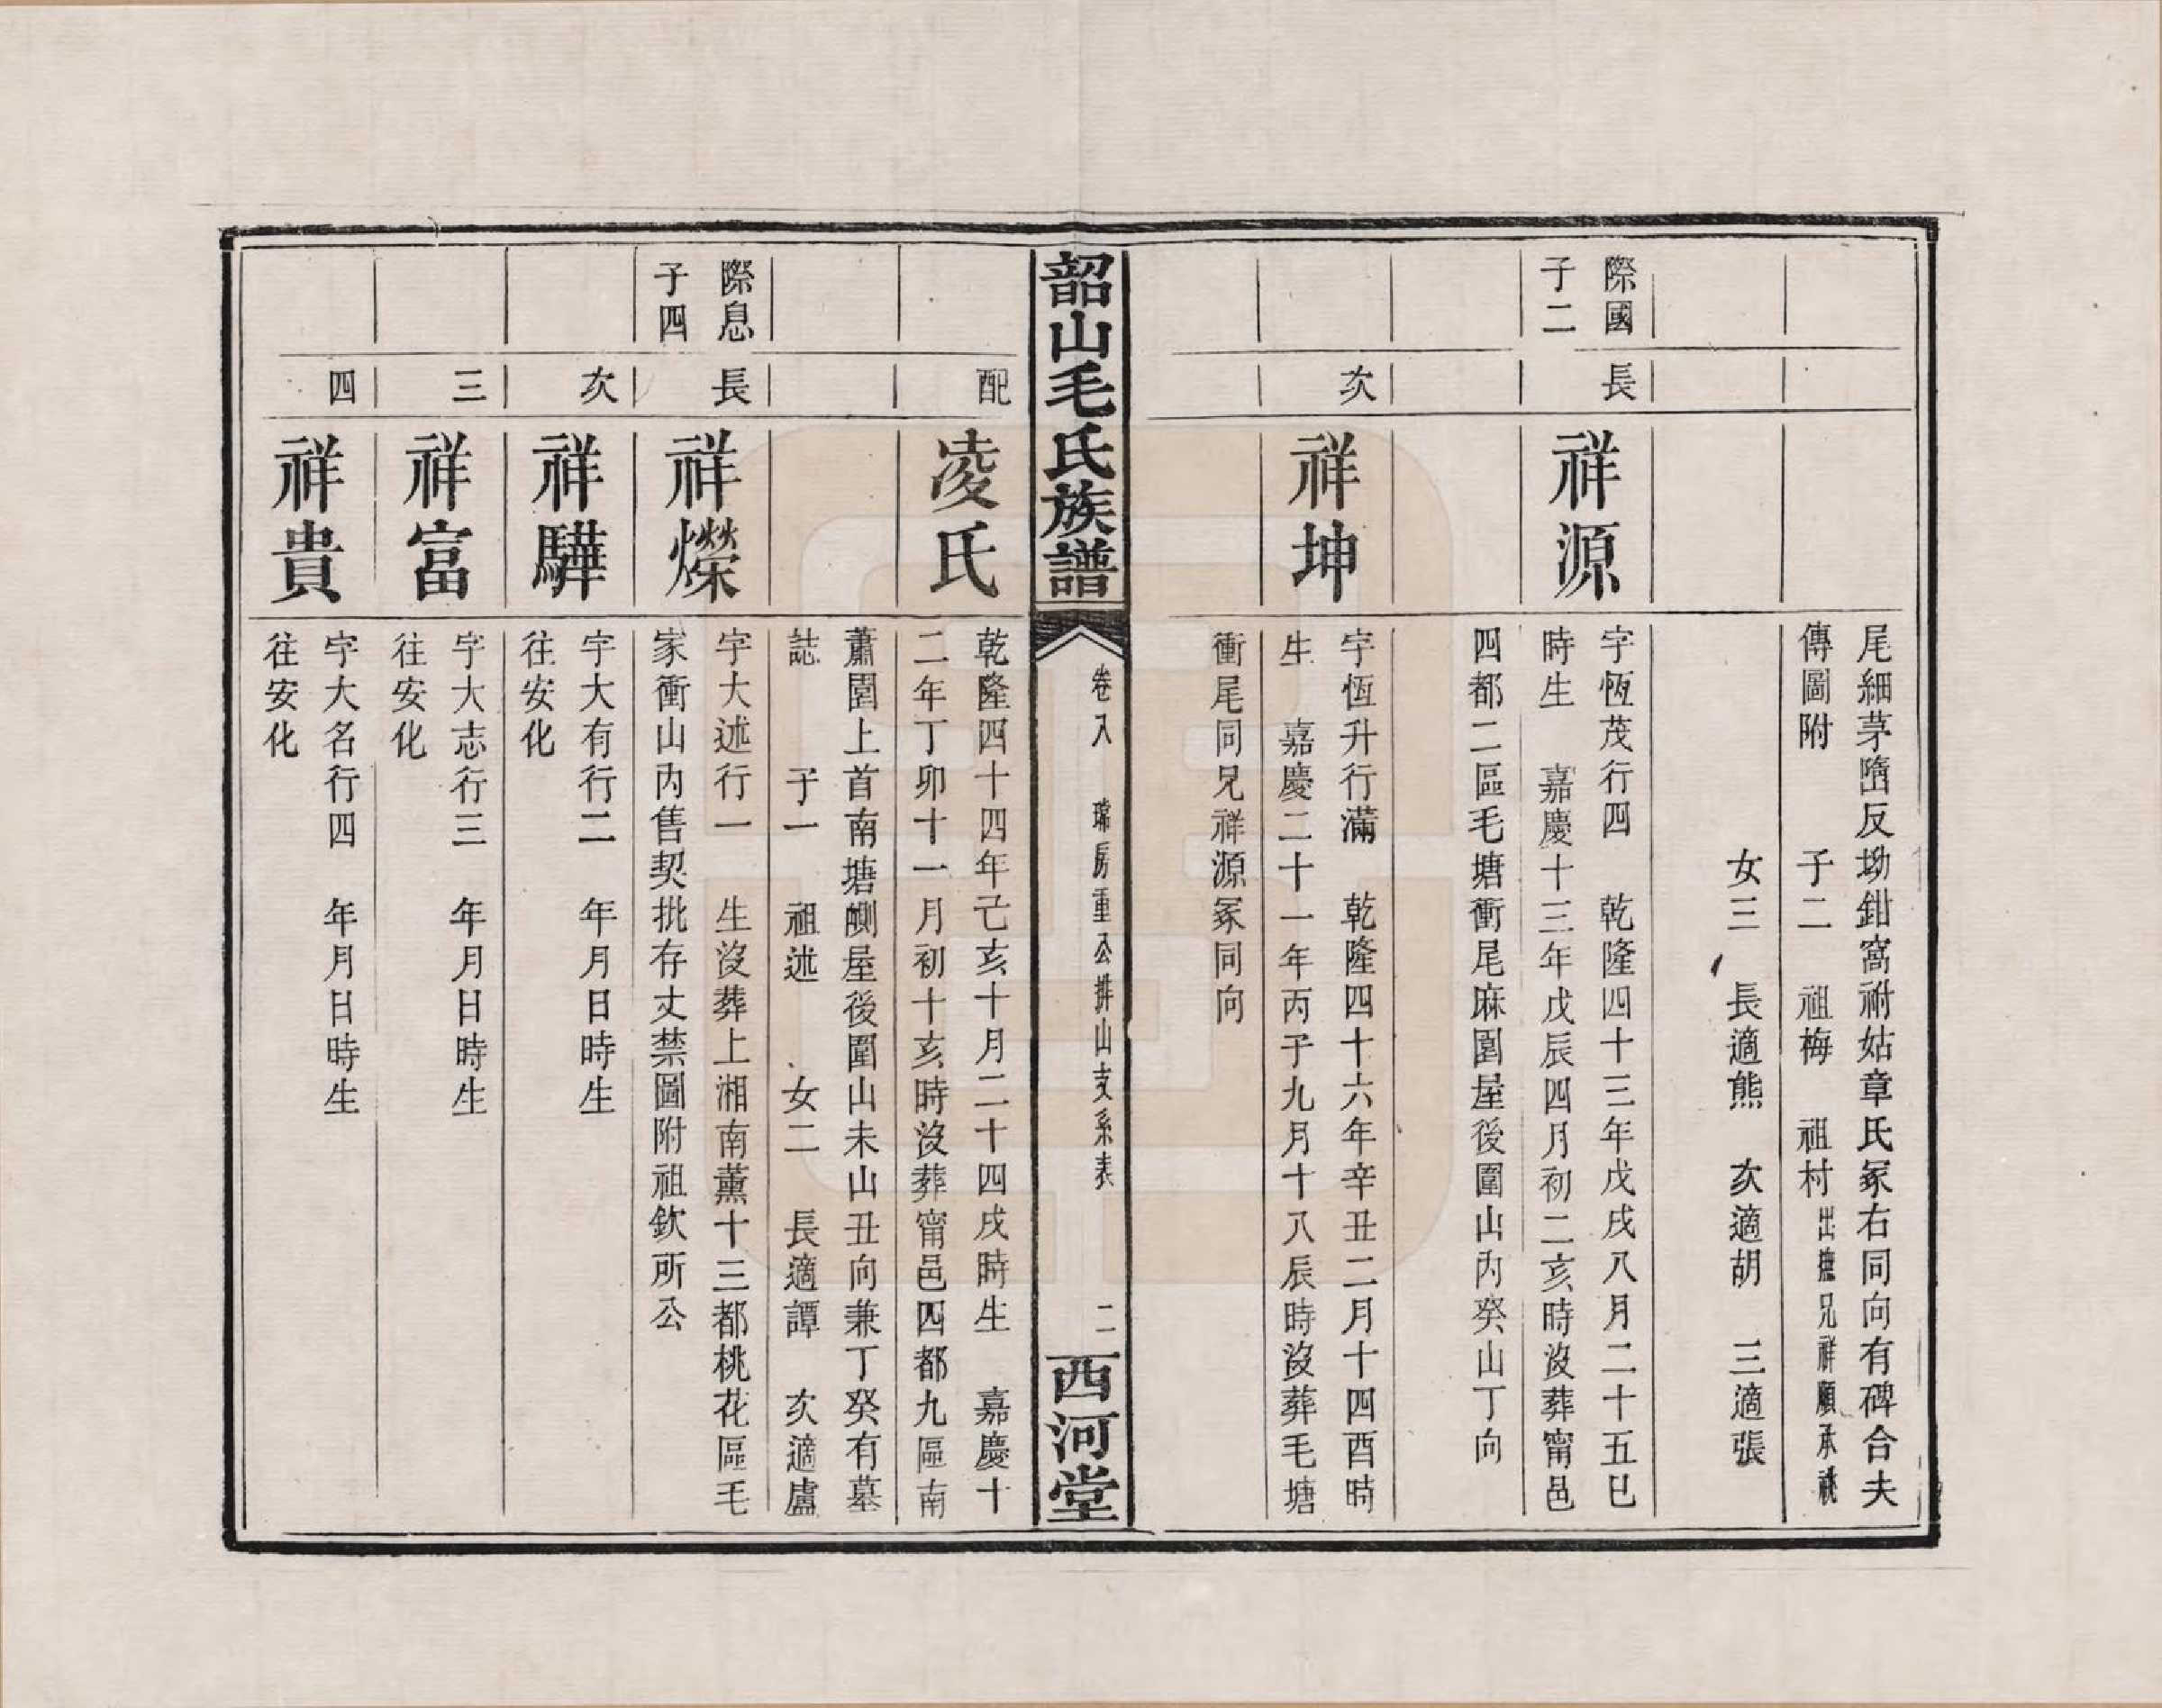 尾細茅㙐反坳鉗窩祔姑章氏冢右同向有碑合夫
傳圖附　子二　祖梅　祖村出撫兄祥願承祧
女三　長適熊　次適胡　三適張
際國
子二
長
祥源
字恆茂行四　乾隆四十三年戊戌八月二十五巳
時生　嘉慶十三年戊辰四月初二亥時沒葬甯邑
四都二區毛塘衝尾麻園屋後圍山內癸山丁向
次
祥坤
字恆升行滿　乾隆四十六年辛丑二月十四酉時
生　嘉慶二十一年丙子九月十八辰時沒葬毛塘
衝尾同兄祥源冢同向
韶山毛氏族譜
卷八　瑞房重公排山支系表　二
西河堂
配
凌氏
乾隆四十四年己亥十月二十四戌時生　嘉慶十
二年丁卯十一月初十亥時沒葬甯邑四都九區南
蕭園上首南塘側屋後圍山未山丑向兼丁癸有墓
誌　子一　祖述　女二　長適譚　次適盧
際息
子四
長
祥爃
字大述行一　生沒葬上湘南薰十三都桃花區毛
家衝山內售契批存丈禁圖附祖欽所公
次
祥驊
字大有行二　年月日時生
往安化
三
祥富
字大志行三　年月日時生
往安化
四
祥貴
字大名行四　年月日時生
往安化